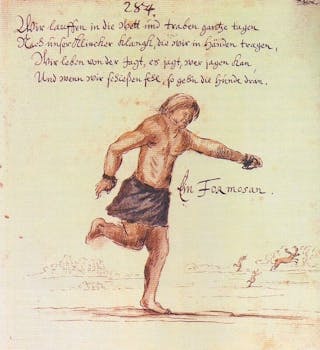 284.
Wir lauffen in die Wett und traben gantze tagen
Nach unser Klincker klangh, die wir in händen tragen,
Wir leben von der Jagt, es jagt, wer jagen kan
Und wenn wir schießen fehl, so gehn die Hunde dran.
Ein Formosan.